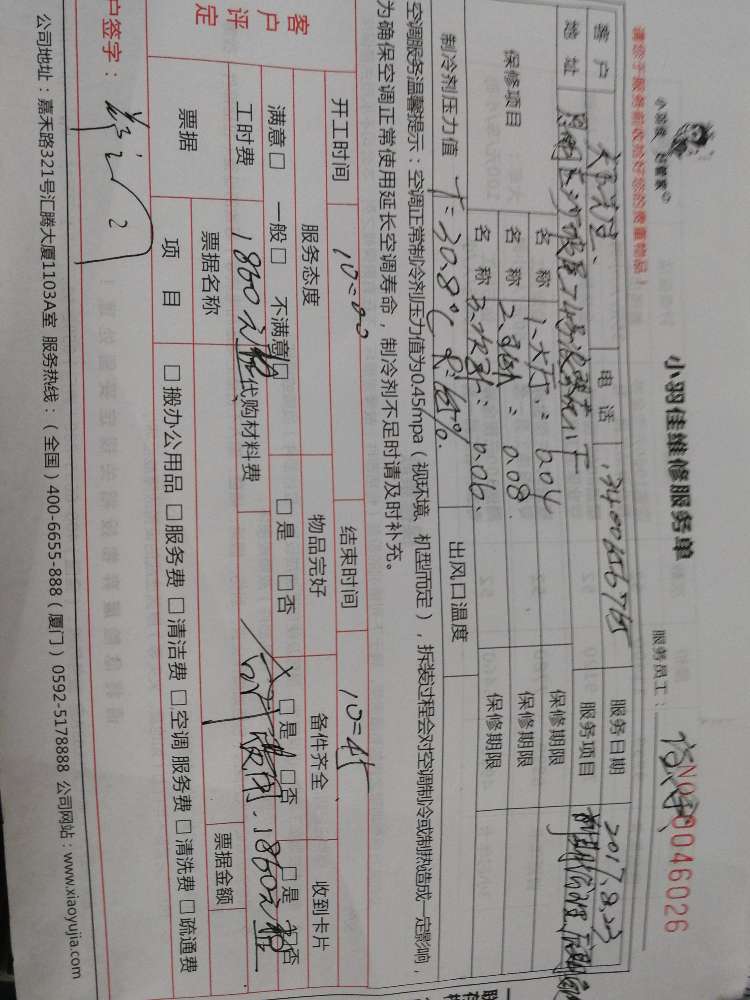 小羽佳维修服务单
小羽佳 好管家
请您于服务前收拾好您的贵重物品！
服务员工：
No 0046026
客户
电话 13400656765
服务日期 2017.8.23
地址
服务项目
保修项目
名称 1.大厅：0.04
保修期限
名称 2. 0.08
保修期限
名称 3. 0.06
保修期限
制冷剂压力值 T=30.8℃
出风口温度
空调服务温馨提示：空调正常制冷剂压力值为0.45mpa（视环境、机型而定），拆装过程会对空调制冷或制热造成一定影响，
为确保空调正常使用延长空调寿命，制冷剂不足时请及时补充。
开工时间 10=00
结束时间 10=45
客户评定
服务态度
物品完好
备件齐全
收到卡片
满意□ 一般□ 不满意□
□是 □否
□是 □否
□是 □否
工时费 1860元整
代购材料费
合计费用：1860元整
票据
票据名称
票据金额
项目
□搬办公用品 □服务费 □清洁费 □空调服务费 □清洗费 □疏通费
户签字：
公司地址：嘉禾路321号汇腾大厦1103A室 服务热线：（全国）400-6655-888（厦门）0592-5178888 公司网站：www.xiaoyujia.com